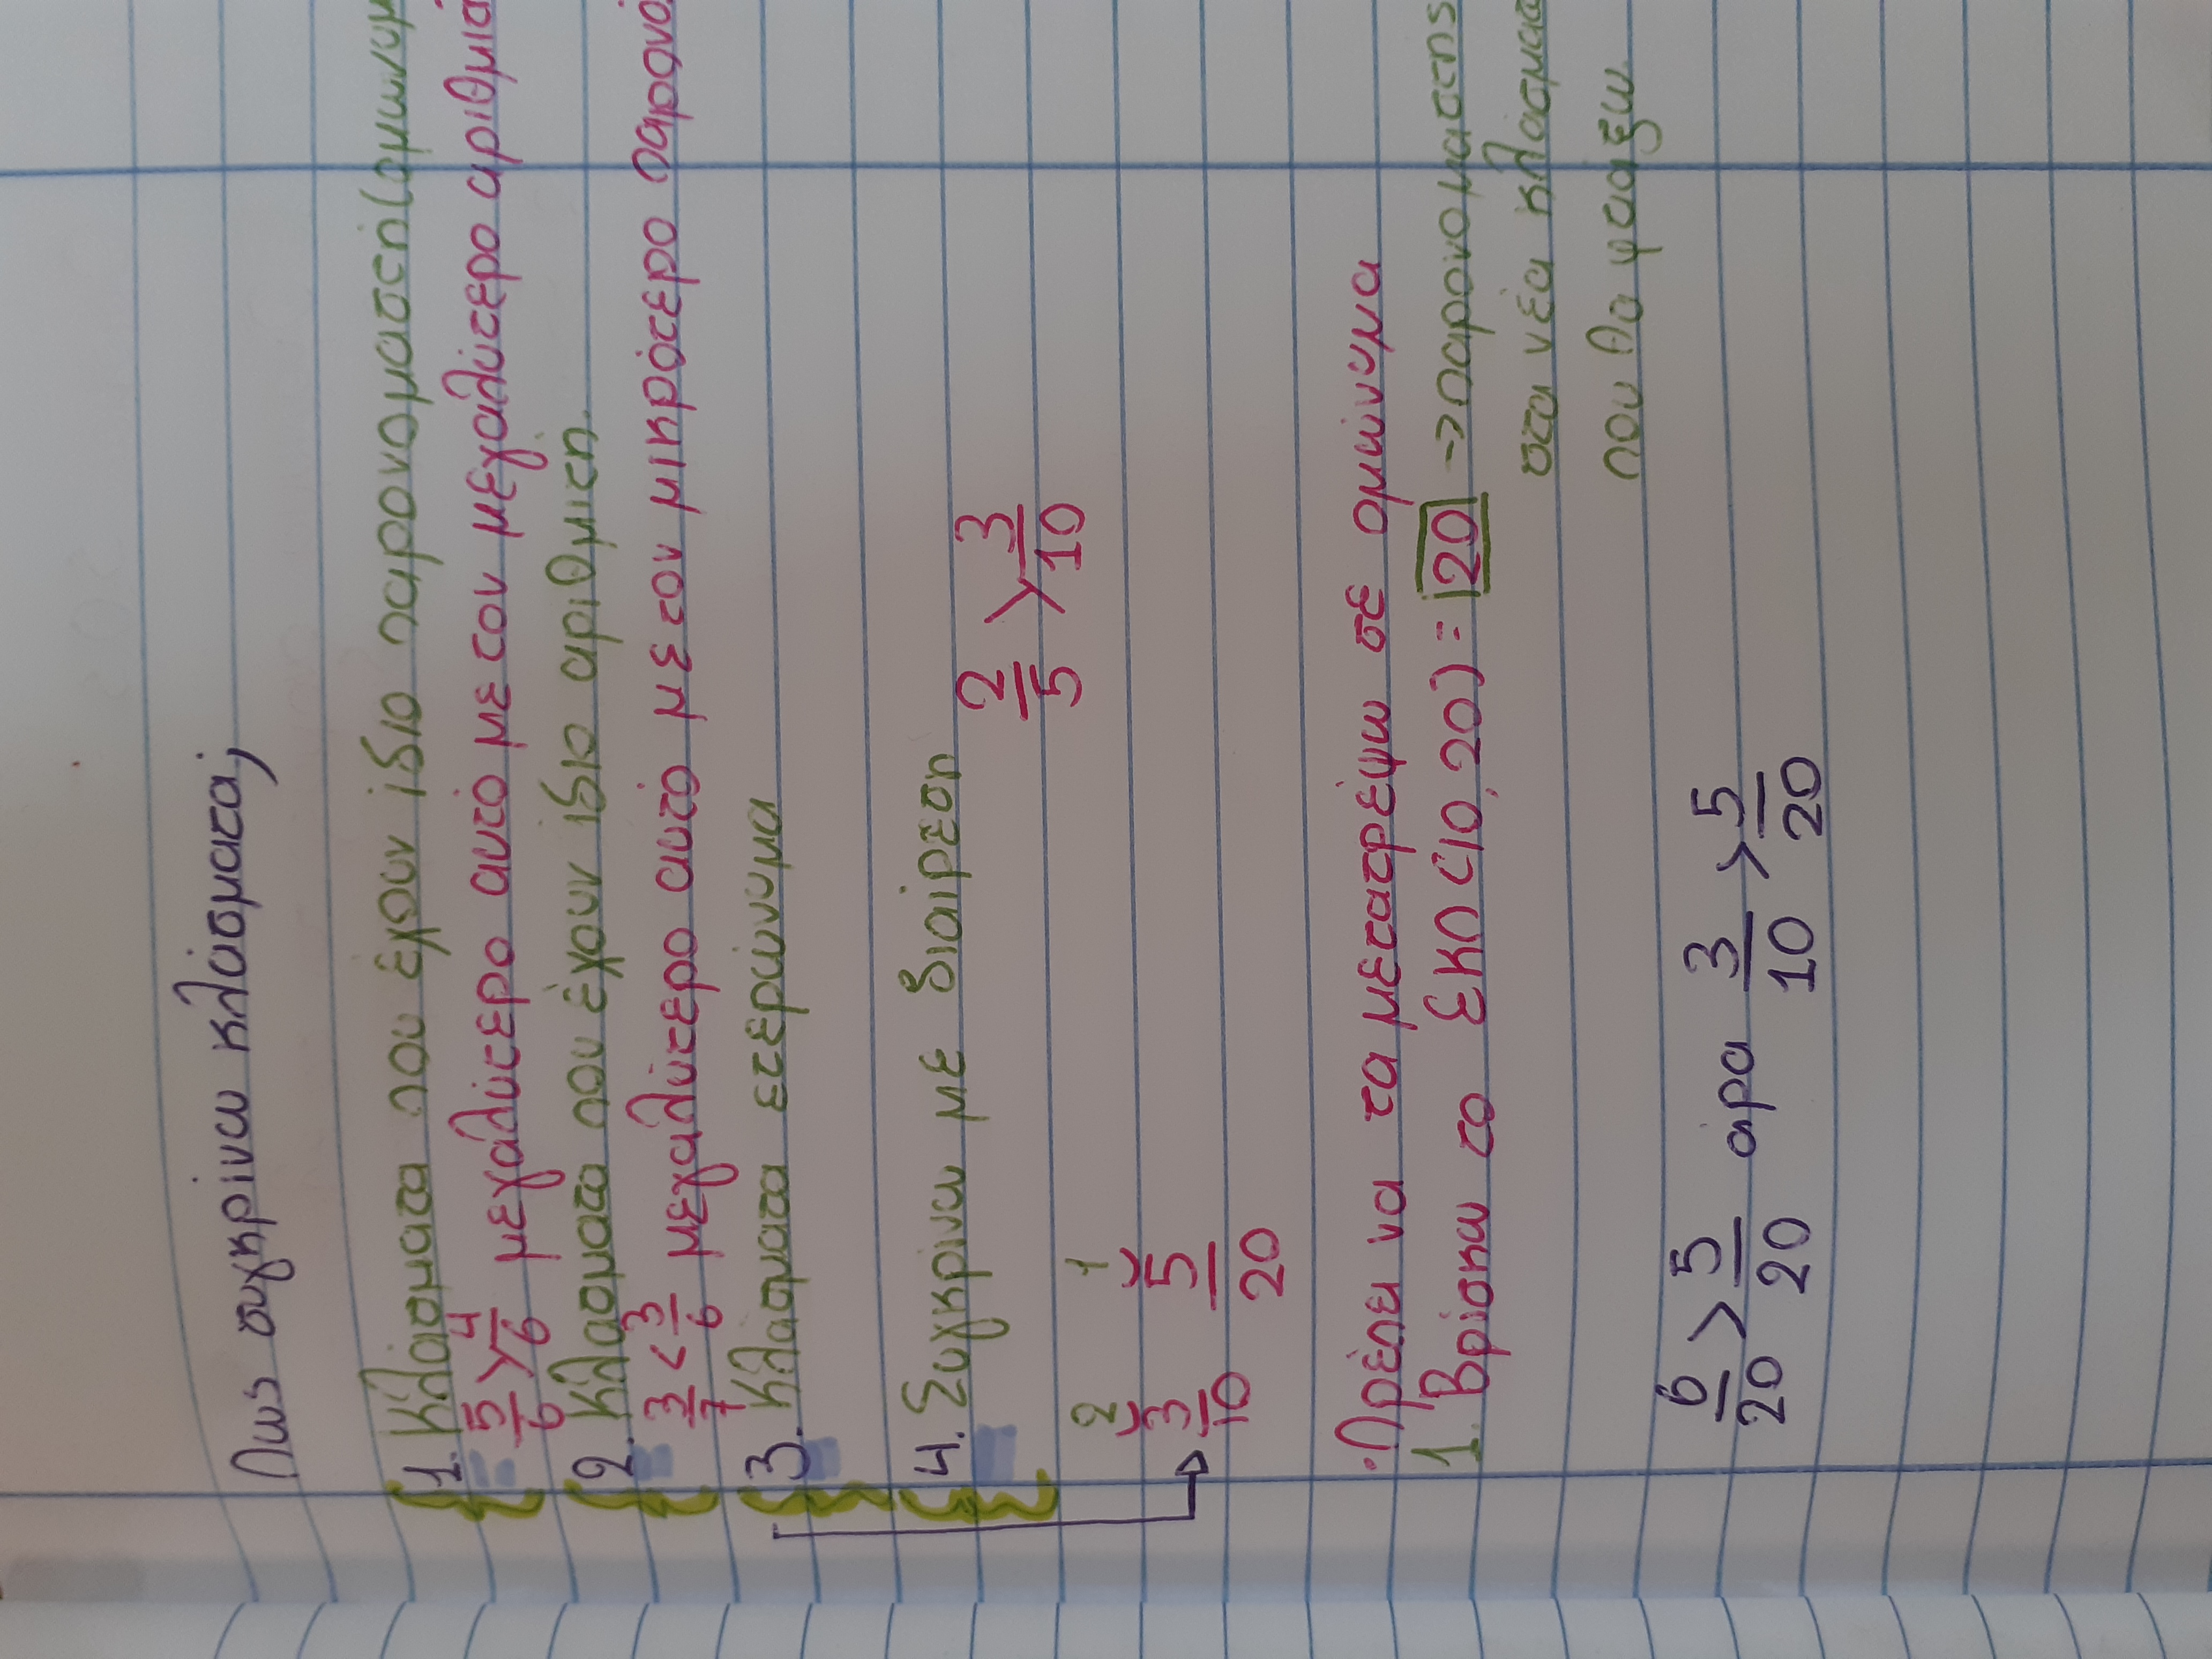 Πως συγκρίνω κλάσματα;
1. Κλάσματα που έχουν ίδιο παρονομαστή (ομωνυμ
5/6 > 4/6 μεγαλύτερο αυτό με τον μεγαλύτερο αριθμ
2. Κλάσματα που έχουν ίδιο αριθμιτή.
3/7 < 3/6 μεγαλύτερο αυτό με τον μικρότερο παρονο
3. Κλάσματα ετερώνυμα
4. Συγκρίνω με διαίρεση
2/5 > 3/10
2 1
3/10 5/20
·Πρέπει να τα μετατρέψω σε ομώνυμα
1. Βρίσκω το ΕΚΠ (10, 20) = 20 → παρονομαστης
στα νέα κλάσματα
που θα φτιάξω
6/20 > 5/20 άρα 3/10 > 5/20